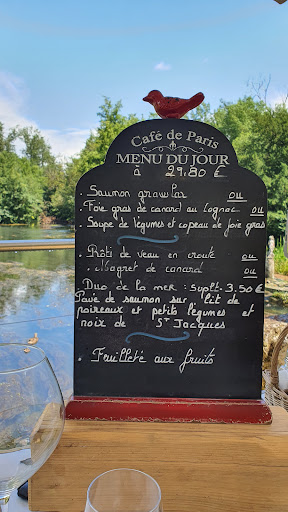 Café de Paris
MENU DU JOUR
à 29.80 €
- Saumon gravlax ou
- Foie gras de canard au Cognac ou
- Soupe de légumes et copeau de foie gras
- Rôti de veau en croute ou
- Magret de canard ou
Duo de la mer : suplt. 3.50 €
Pavé de saumon sur lit de
poireaux et petits légumes et
noix de St Jacques
- Feuilleté aux fruits